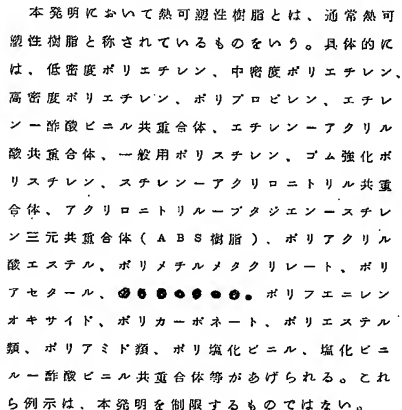 本発明において熱可塑性樹脂とは、通常熱可
塑性樹脂と称されているものをいう。具体的に
は、低密度ポリエチレン、中密度ポリエチレン、
高密度ポリエチレン、ポリプロピレン、エチレ
ン－酢酸ビニル共重合体、エチレン－アクリル
酸共重合体、一般用ポリスチレン、ゴム強化ポ
リスチレン、スチレン－アクリロニトリル共重
合体、アクリロニトリル－ブタジエン－スチレ
ン三元共重合体（ＡＢＳ樹脂）、ポリアクリル
酸エステル、ポリメチルメタクリレート、ポリ
アセタール、ポリフエニレン
オキサイド、ポリカーボネート、ポリエステル
類、ポリアミド類、ポリ塩化ビニル、塩化ビニ
ル－酢酸ビニル共重合体等があげられる。これ
ら例示は、本発明を制限するものではない。